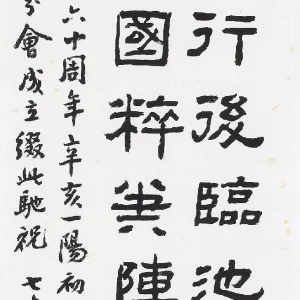 行後臨池
國粹異陣
六十周年辛亥一陽初
分會成立綴此馳祝 七